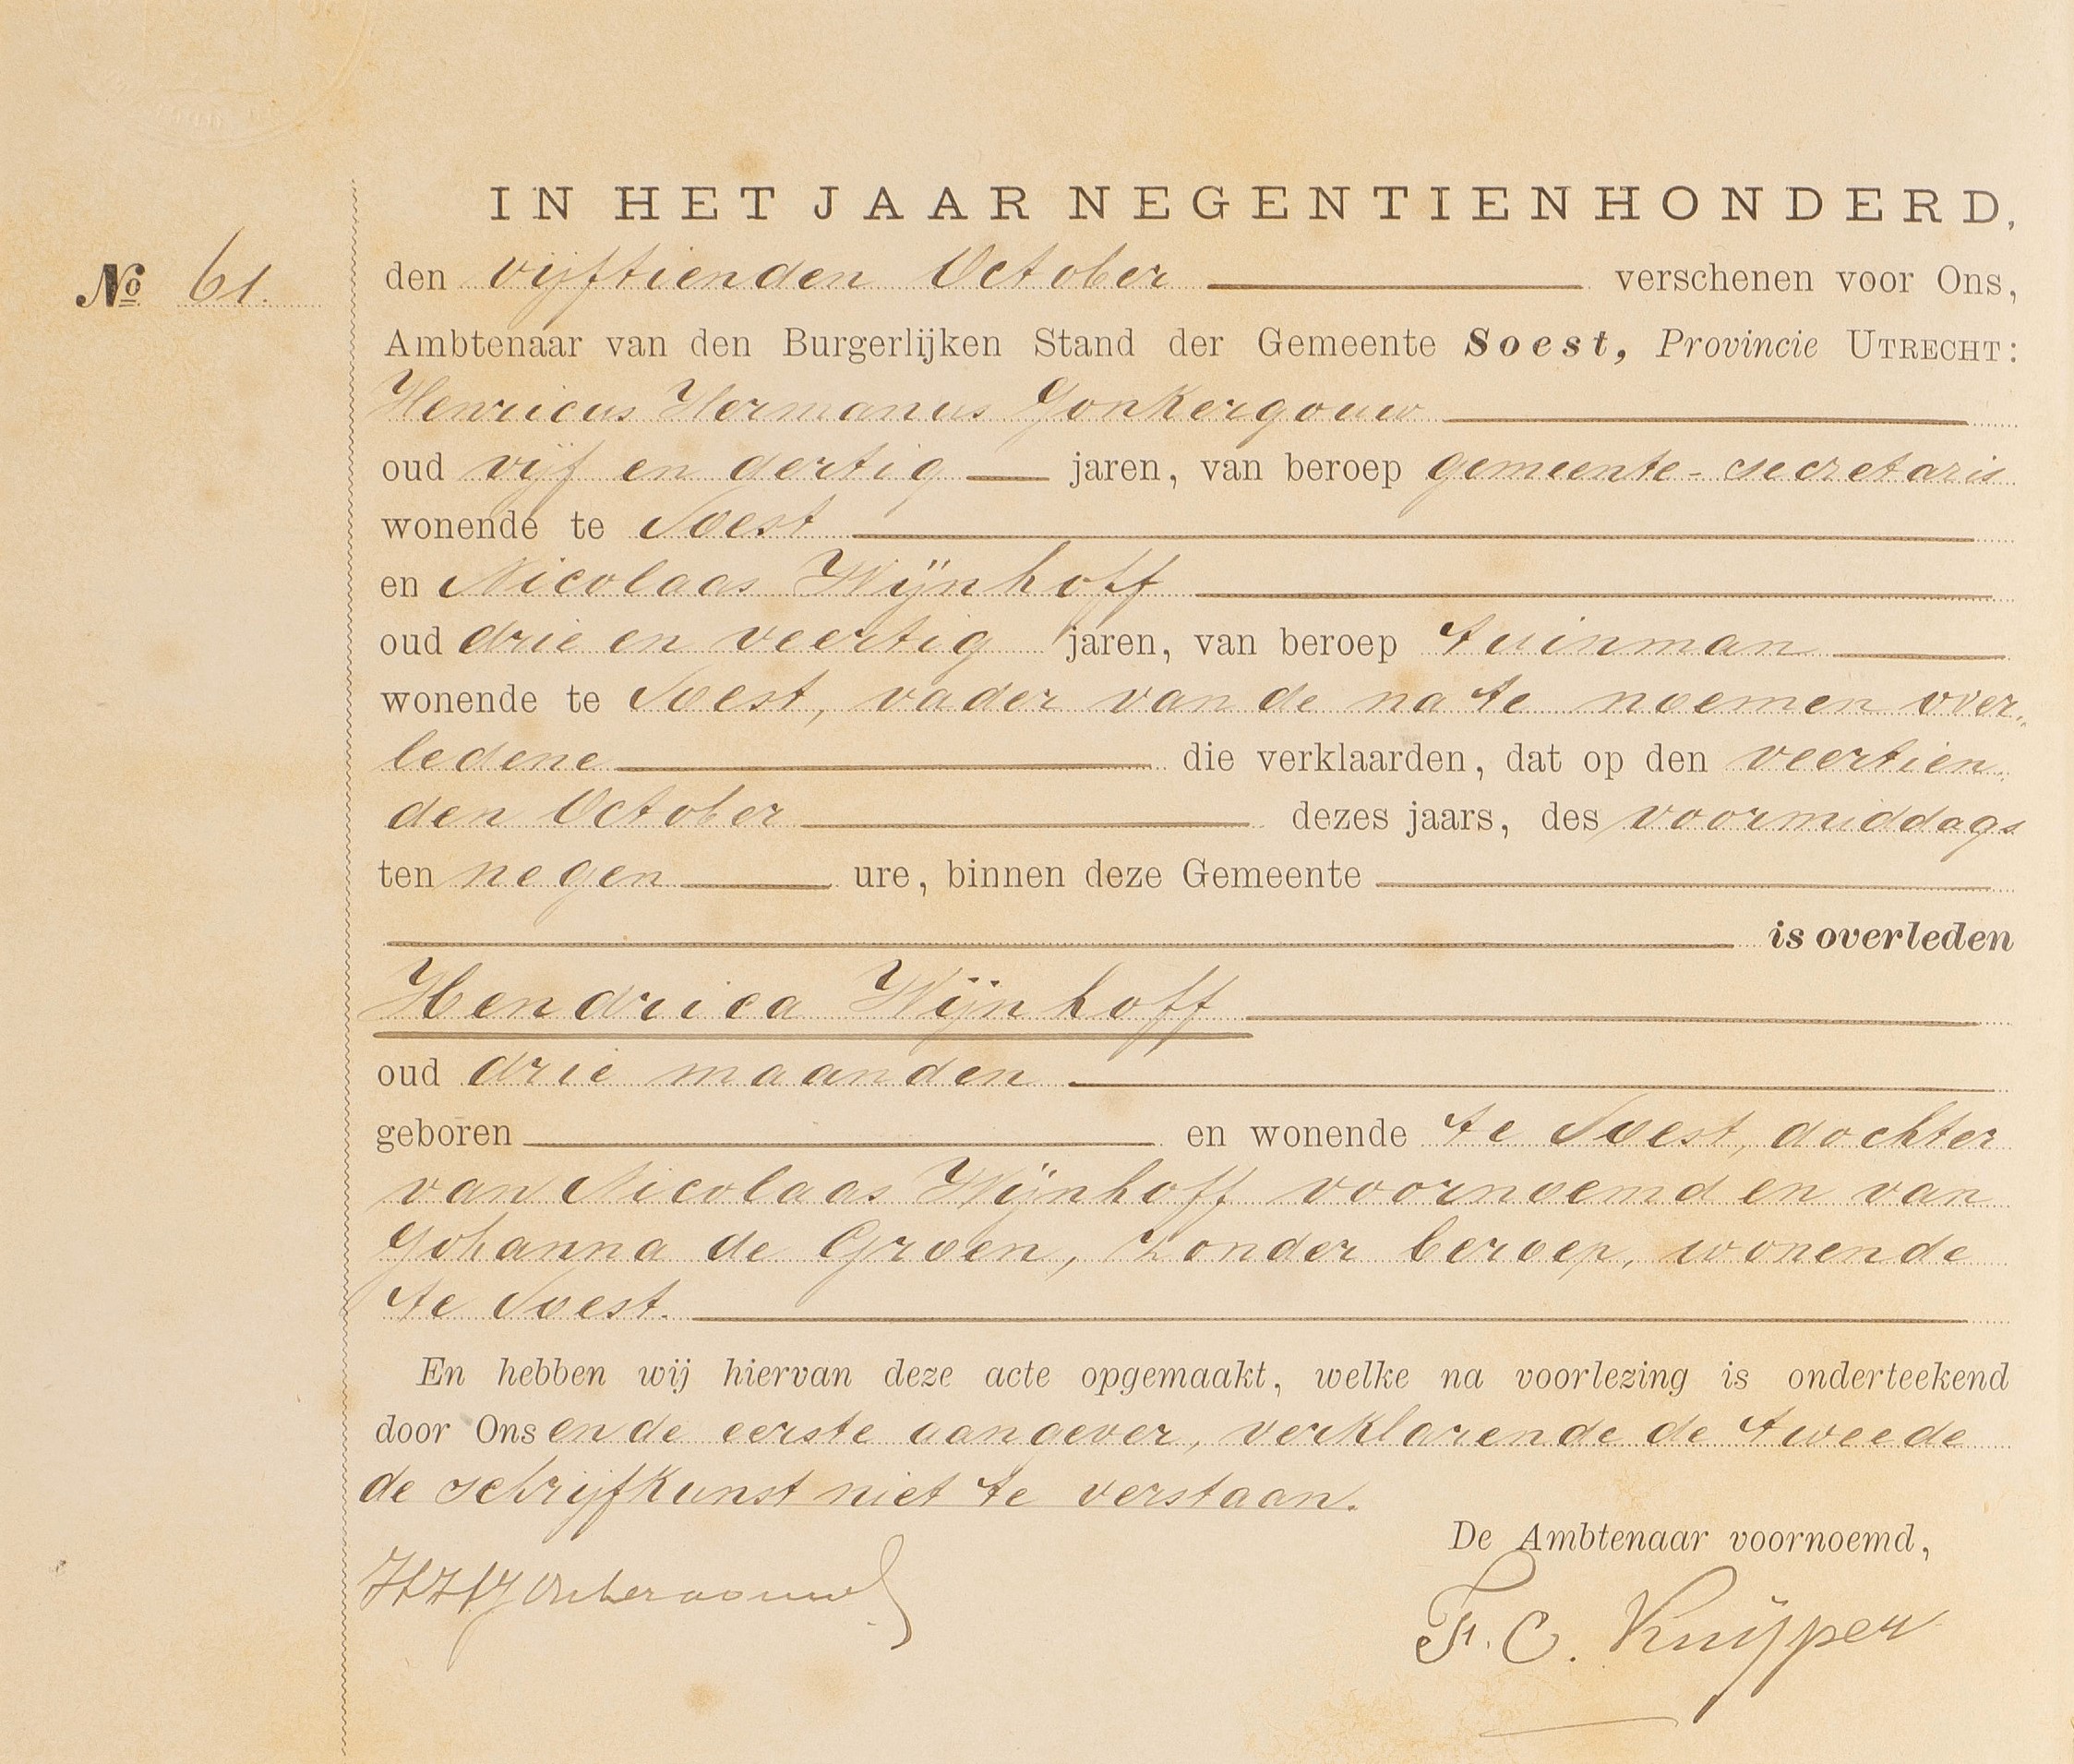 IN HET JAAR NEGENTIENHONDERD,
No 61.
den vijftienden October verschenen voor Ons,
Ambtenaar van den Burgerlijken Stand der Gemeente Soest, Provincie UTRECHT:
Henricus Hermanus Jonkergouw
oud vijf en dertig jaren, van beroep gemeente-secretaris
wonende te Soest
en Nicolaas Wijnhoff
oud drie en veertig jaren, van beroep tuinman
wonende te Soest, vader van de na te noemen over-
ledene die verklaarden, dat op den veertien-
den October dezes jaars, des voormiddags
ten negen ure, binnen deze Gemeente
is overleden
Hendrica Wijnhoff
oud drie maanden
geboren en wonende te Soest, dochter
van Nicolaas Wijnhoff voornoemd en van
Johanna de Groen, zonder beroep, wonende
te Soest.
En hebben wij hiervan deze acte opgemaakt, welke na voorlezing is onderteekend
door Ons en de eerste aangever, verklarende de tweede
de schrijfkunst niet te verstaan.
De Ambtenaar voornoemd,
HHJonkergouw
F. C. Kuijper